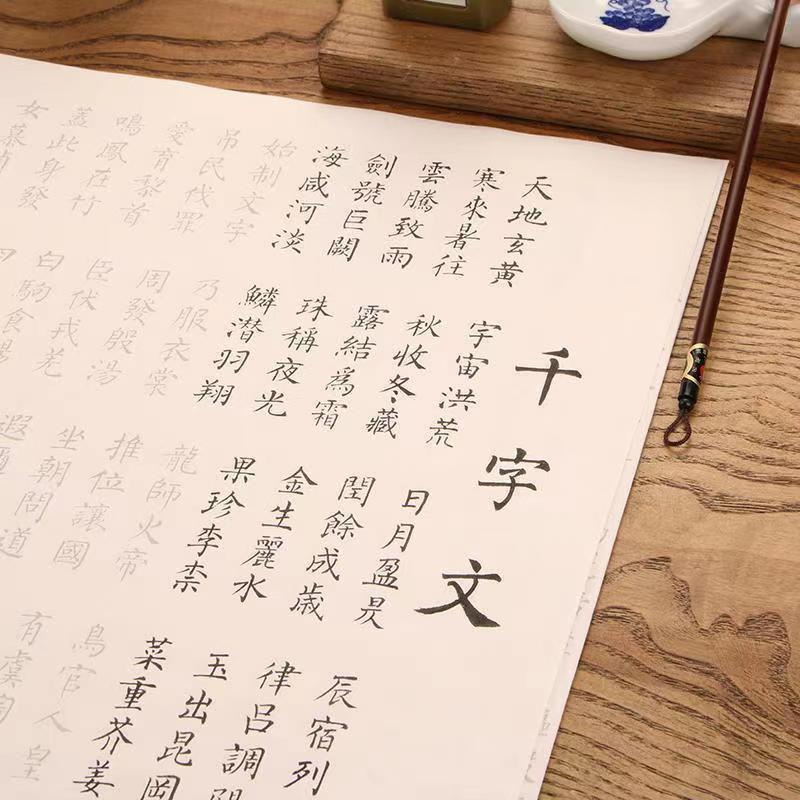 千字文
天地玄黄 宇宙洪荒 日月盈昃 辰宿列
寒來暑往 秋收冬藏 閏餘成歲 律呂調陽
雲騰致雨 露結爲霜 金生麗水 玉出昆岡
劍號巨闕 珠稱夜光 果珍李柰 菜重芥姜
海咸河淡 鱗潜羽翔 龍師火帝 鳥官人皇
始制文字 乃服衣裳 推位讓國 有虞陶
吊民伐罪 周發殷湯 坐朝問道
愛育黎首 臣伏戎羌 遐邇
鳴鳳在竹 白駒食場
蓋此身發
女慕